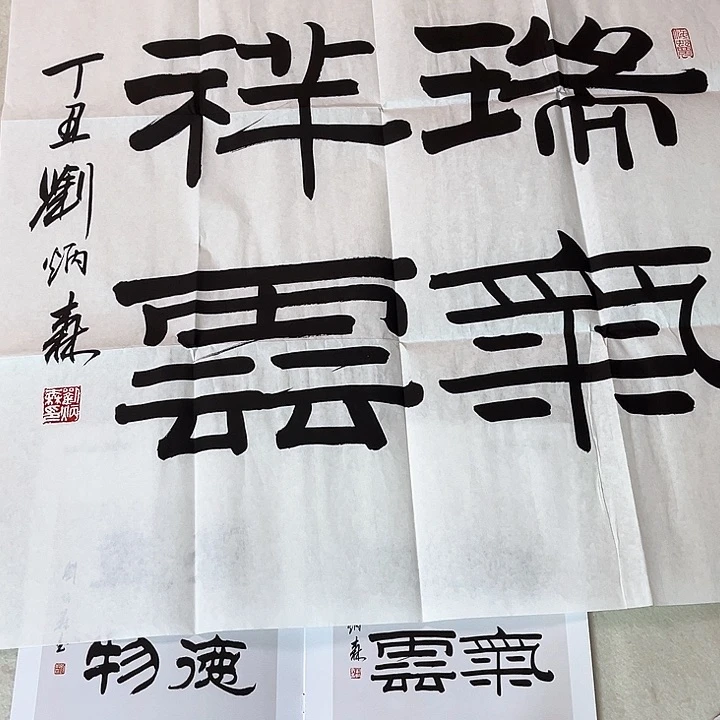 瑞氣
祥雲
丁丑劉炳森
劉炳森印
德
物
氣
雲
炳森